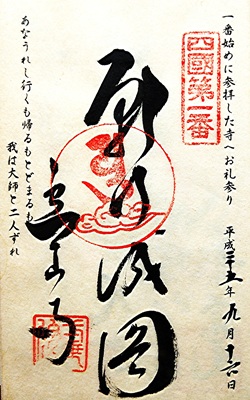 四國第一番
一番始めに参拝した寺へお礼参り　平成二十五年九月十六日
願行成圓
霊山寺
あなうれし行くも帰るもとどまるも
我は大師と二人ずれ